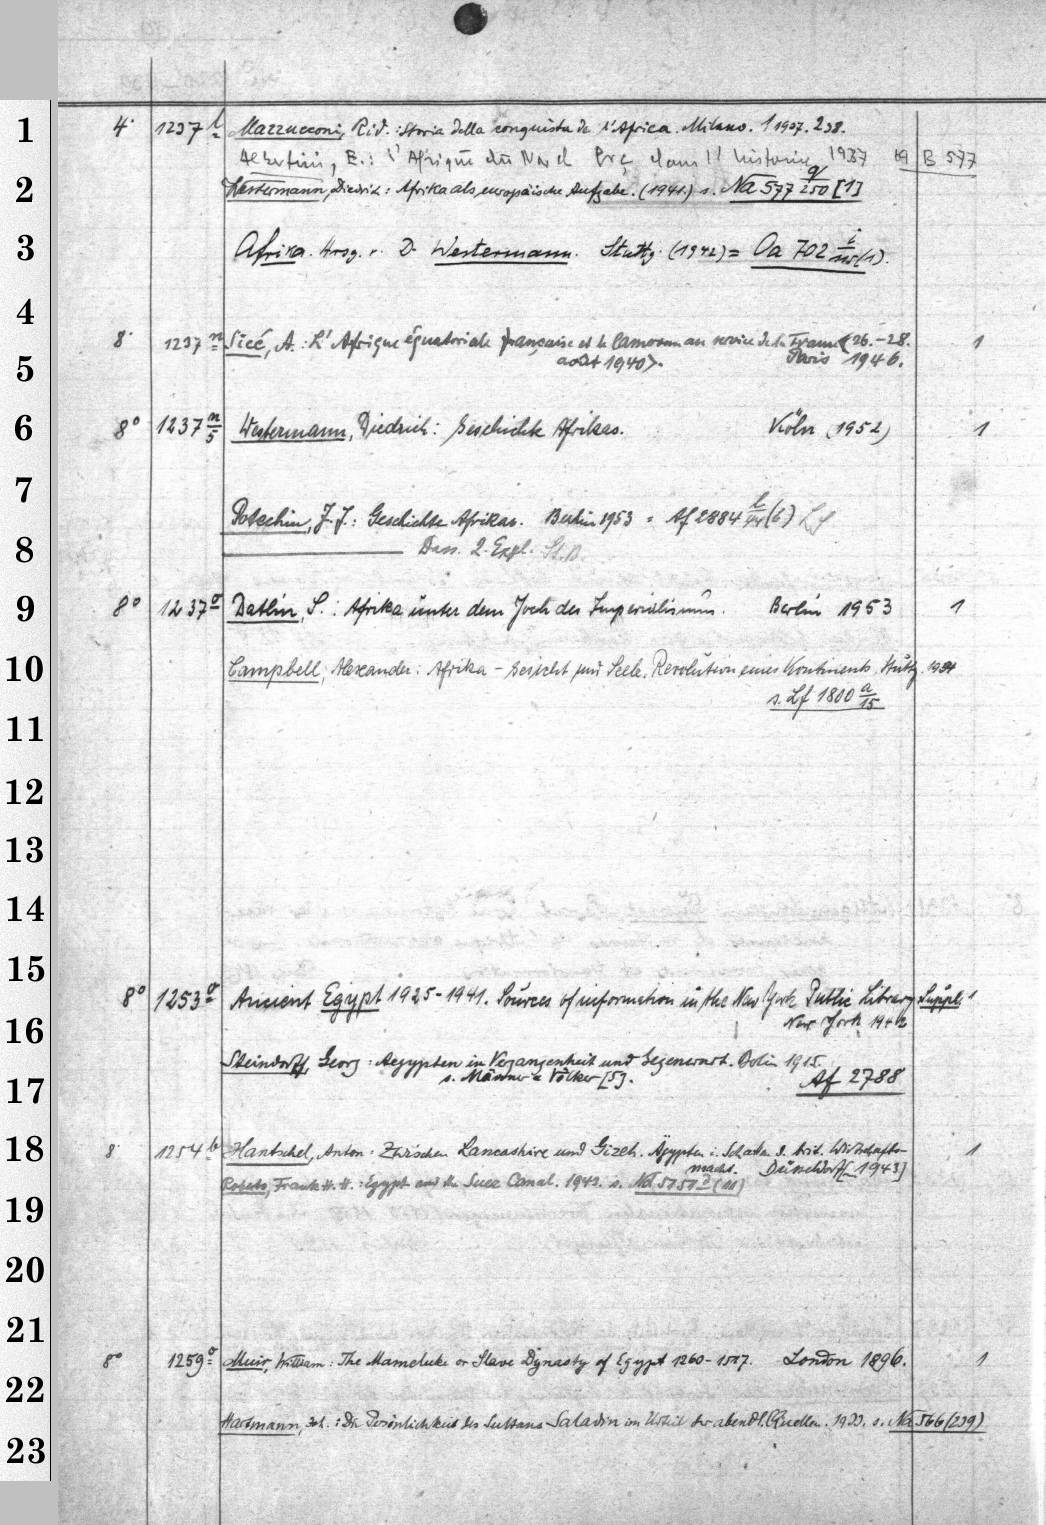 1 4° 1237 l Mazzucconi, Rid.: Storia della conquista de l'Africa. Milano. 1937. 238.
Albertini, E.: L'Afrique du Nord frç. dans l'histoire 1937 B 577
2 Westermann, Diedrich: Afrika als europäische Aufgabe. (1941) s. Na 577 q/250 [1]
3 Afrika. Hrsg. v. D. Westermann. Stuttg. (1942) = Oa 702 i/ (1).
4
8° 1237 m Sicé, A.: L'Afrique équatoriale française et le Cameroun au service de la France <26.-28. 1
5 août 1940>. Paris 1946.
6 8° 1237 n/5 Westermann, Diedrich: Geschichte Afrikas. Köln (1952) 1
7
Potechin, J. J.: Geschichte Afrikas. Berlin 1953 = Af 2884 (6) Lf
8 Dass. 2. Expl. St.B.
9 8° 1237 o Datlin, S.: Afrika unter dem Joch des Imperialismus. Berlin 1953 1
10 Campbell, Alexander: Afrika - Gesicht und Seele. Revolution eines Kontinents. Stuttg. 1954
s. Lf 1800 a/15
11
12
13
14
15
8° 1253 g Ancient Egypt 1925-1941. Sources of information in the New York Public Library Suppl. 1
16 New York 1942
Steindorff, Georg: Aegypten in Vergangenheit und Gegenwart. Berlin 1915.
17 s. Männer u. Völker [5]. Af 2788
18 8° 1254 b Hantschel, Anton: Zwischen Lancashire und Gizeh. Ägypten i. Schatten d. brit. Wirtschafts- 1
macht. Düsseldorf [1943]
Roberts, Frank H. H.: Egypt and the Suez Canal. 1943. s. Nd 5151 (11)
19
20
21
8° 1259 o Muir, William: The Mameluke or Slave Dynasty of Egypt 1260-1517. London 1896. 1
22
Hartmann, Joh.: Die Persönlichkeit des Sultans Saladin im Urteil der abendl. Quellen. 1933. s. Na 566 (239)
23